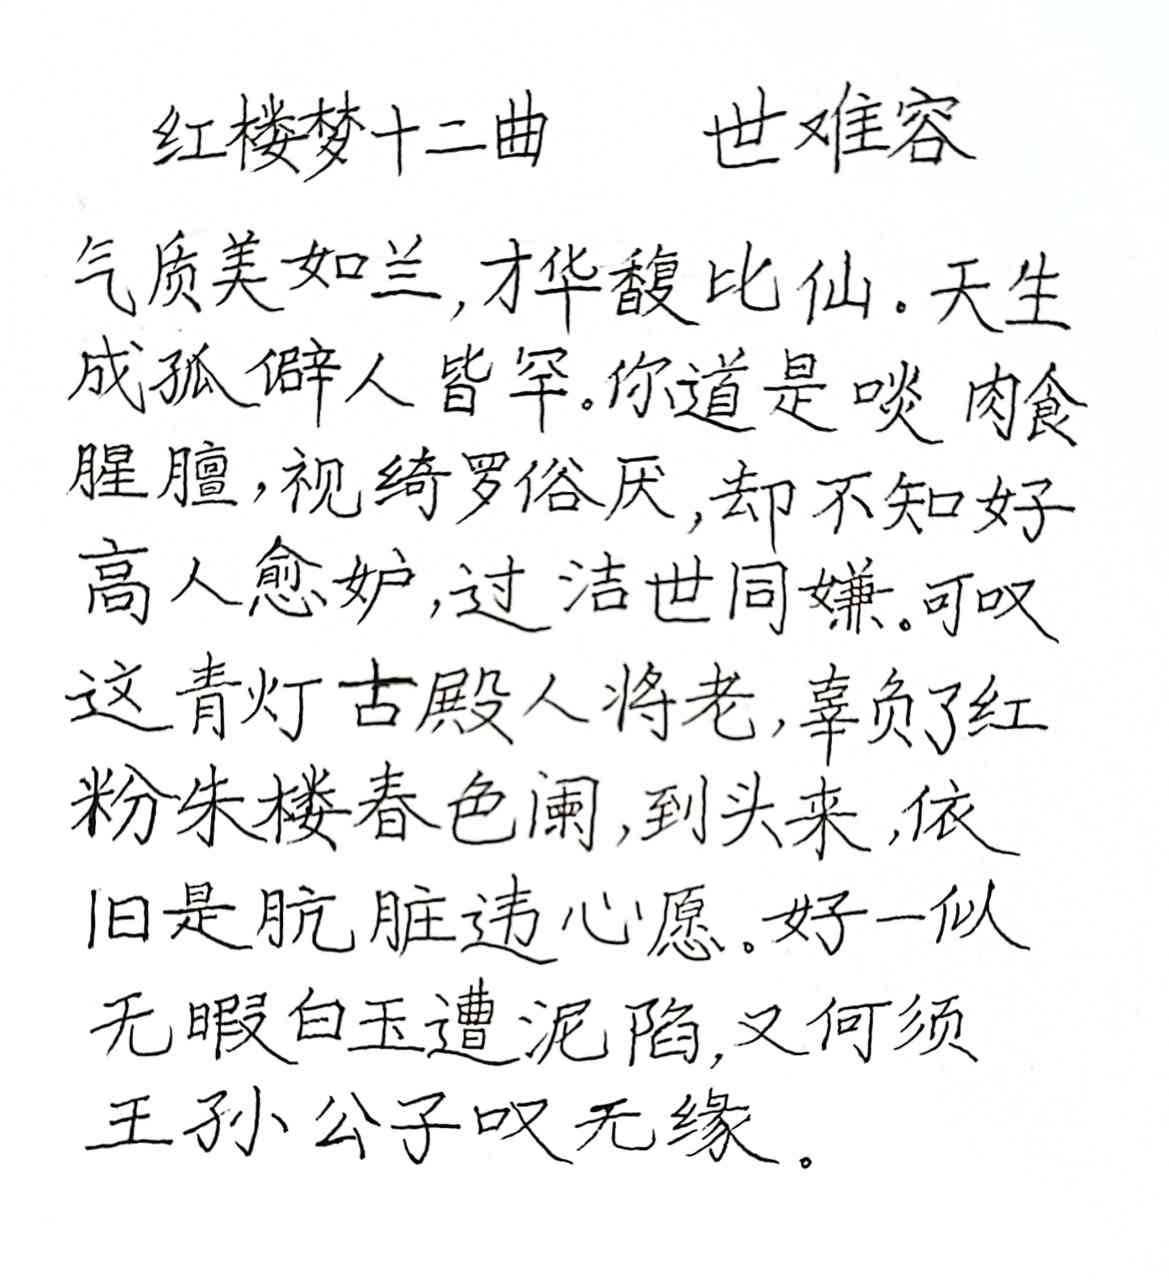 红楼梦十二曲 世难容
气质美如兰,才华馥比仙。天生
成孤僻人皆罕。你道是啖肉食
腥膻,视绮罗俗厌,却不知好
高人愈妒,过洁世同嫌。可叹
这青灯古殿人将老,辜负了红
粉朱楼春色阑,到头来,依
旧是肮脏违心愿。好一似
无暇白玉遭泥陷,又何须
王孙公子叹无缘。